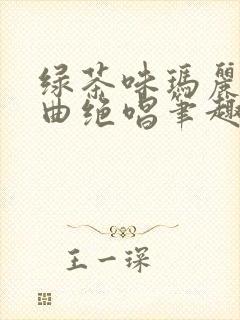 绿茶味玛麗
曲绝唱筆趣
王一琛